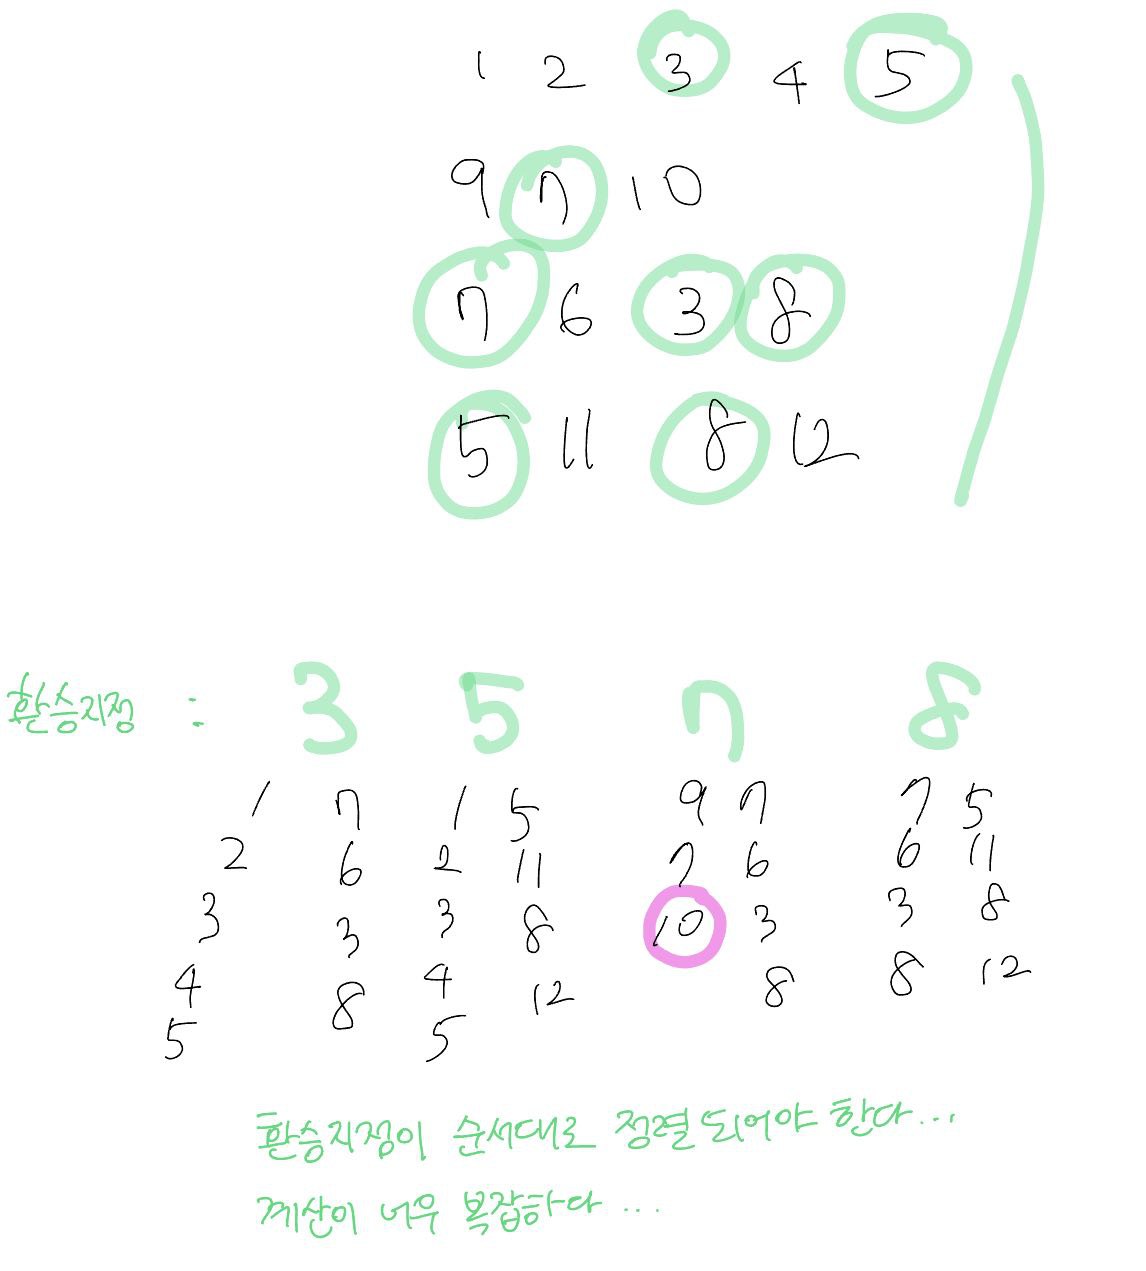 1 2 3 4 5
9 7 10
7 6 3 8
5 11 8 12
환승지점 : 3 5 7 8
1 7 1 5 9 7 7 5
2 6 2 11 7 6 6 11
3 3 3 8 10 3 3 8
4 8 4 12 8 8 12
5 5
환승지점이 순서대로 정렬되어야 한다...
계산이 너무 복잡하다...